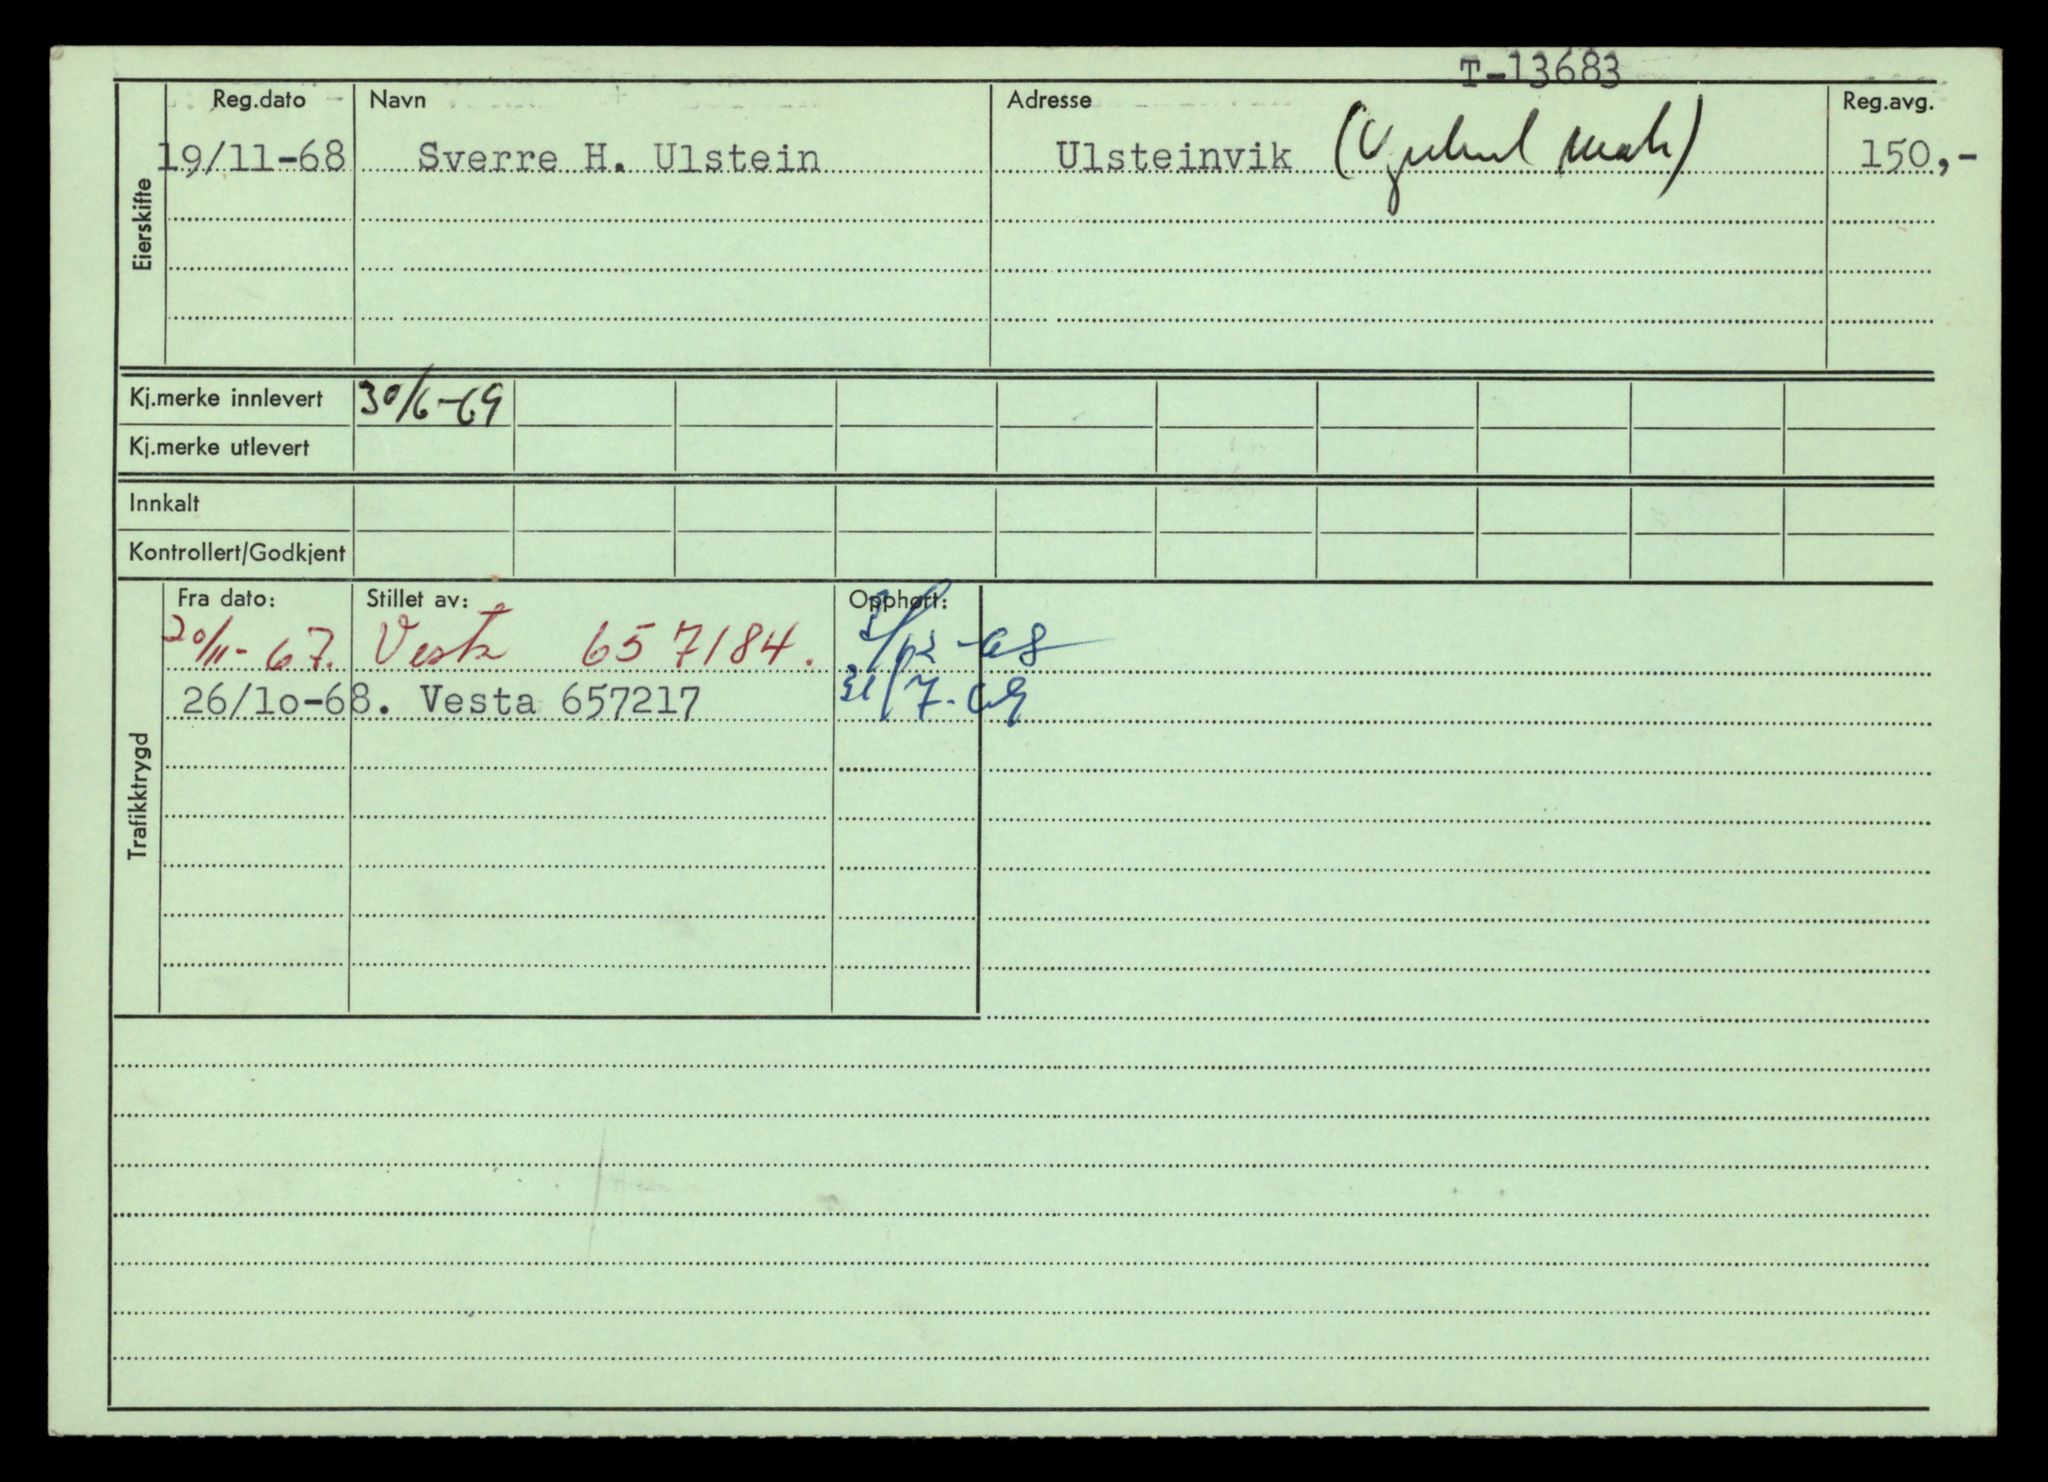 T-13683
Reg.dato Navn Adresse Reg.avg.
19/11-68 Sverre H. Ulstein Ulsteinvik 150,-
Eierskifte
Kj.merke innlevert 30/6-69
Kj.merke utlevert
Innkalt
Kontrollert/Godkjent
Fra dato: Stillet av: Opphørt:
20/11-67. Vesta 657184.
26/10-68. Vesta 657217 31/7-69
Trafikktrygd